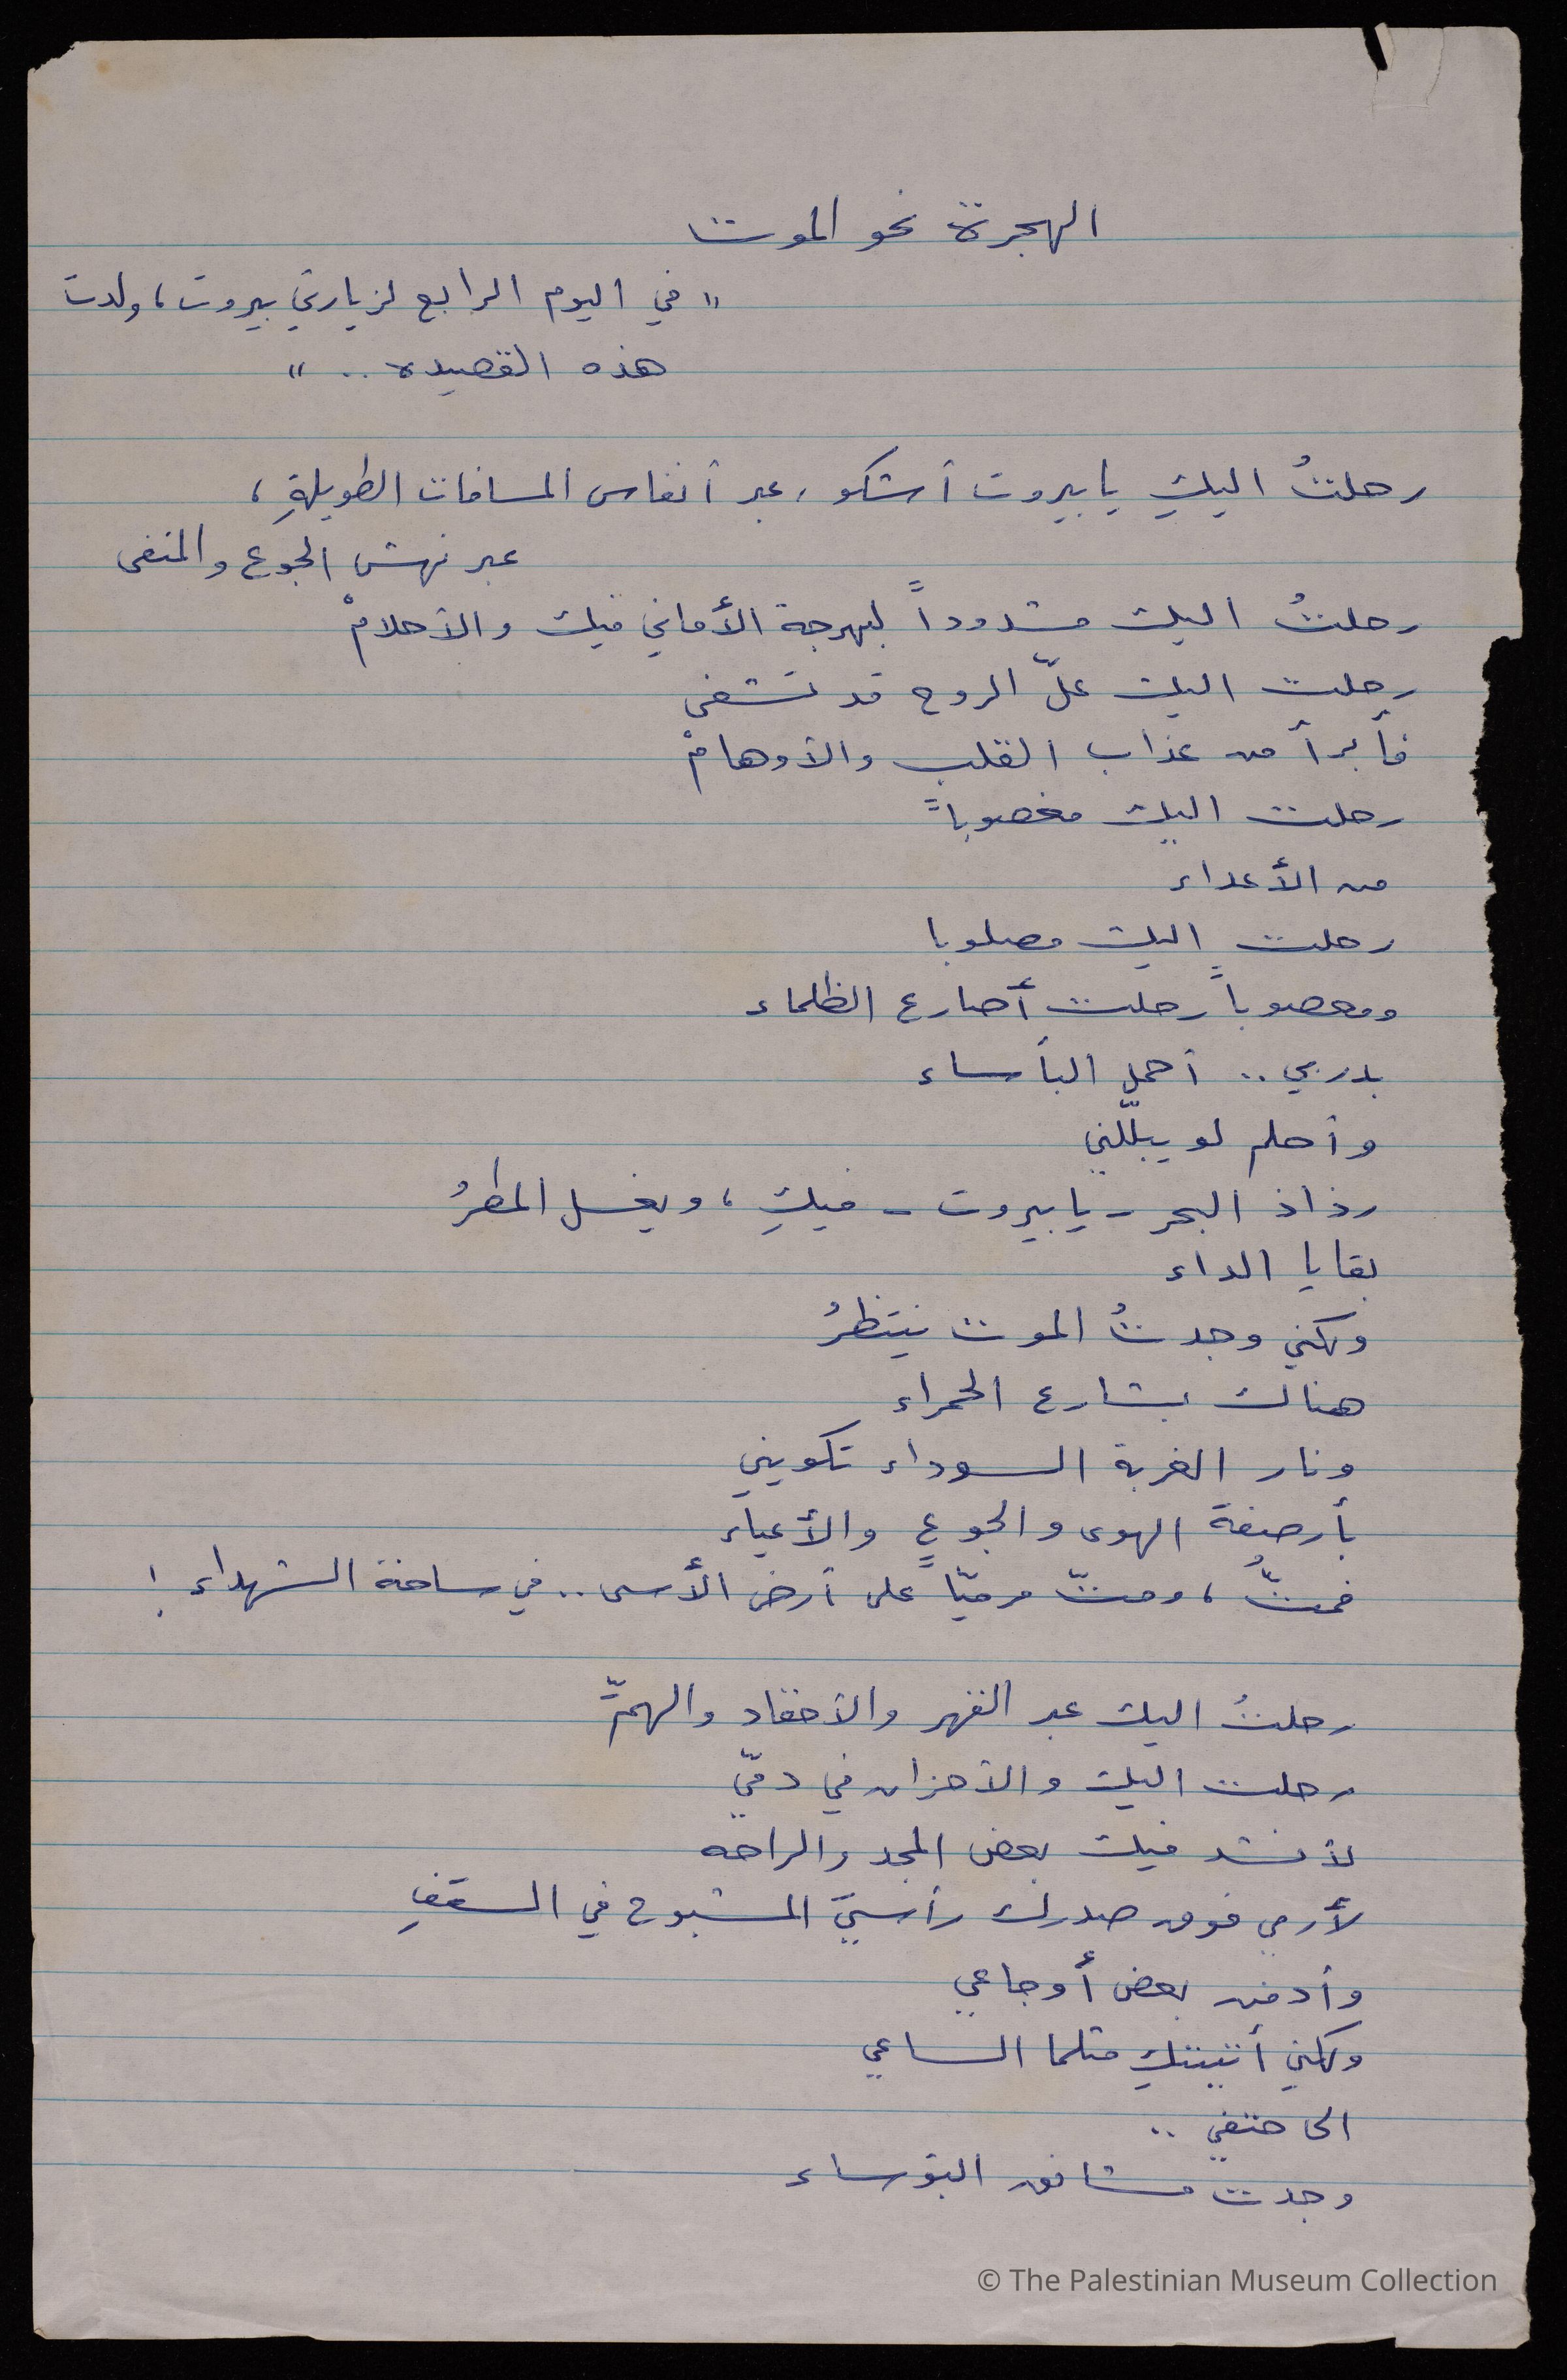 الهجرة نحو الموت
" في اليوم الرابع لزيارتي بيروت، ولدت
هذه القصيده .. "
رحلتُ اليكِ يا بيروت أشكو، عبر أنفاس المسافات الطويلةِ،
عبر نهش الجوع والمنفى
رحلتُ اليك مشدوداً لبهرجة الأماني فيك والأحلامْ
رحلت اليك علّ الروح قد تشفى
فأبرأ من عذاب القلب والأوهامْ
رحلت اليك مغصوباً
من الأعداء
رحلت اليك مصلوبا
ومعصوباً رحلت أصارع الظلماء
بدربي .. أحمل البأساء
وأحلم لو يبلّلني
رذاذ البحر - يا بيروت - فيكِ، ويغسل المطرُ
بقايا الداء
ولكني وجدتُ الموت ينتظرُ
هناك بشارع الحمراء
ونار الغربة السوداء تكويني
بأرصفة الهوى والجوعِ والأعياء
فمتُّ، ومتّ مرميّاً على أرض الأسى .. في ساحة الشهداء !
رحلتُ اليك عبر القهر والأحقاد والهمِّ
رحلت اليك والأحزان في دمّي
لأنشد فيك بعض المجد والراحه
لأرمي فوق صدرك رأسيَ المشبوح في السقفِ
وأدفن بعض أوجاعي
ولكني أتيتكِ مثلما الساعي
الى حتفي ..
وجدت مشانق البؤساء
© The Palestinian Museum Collection